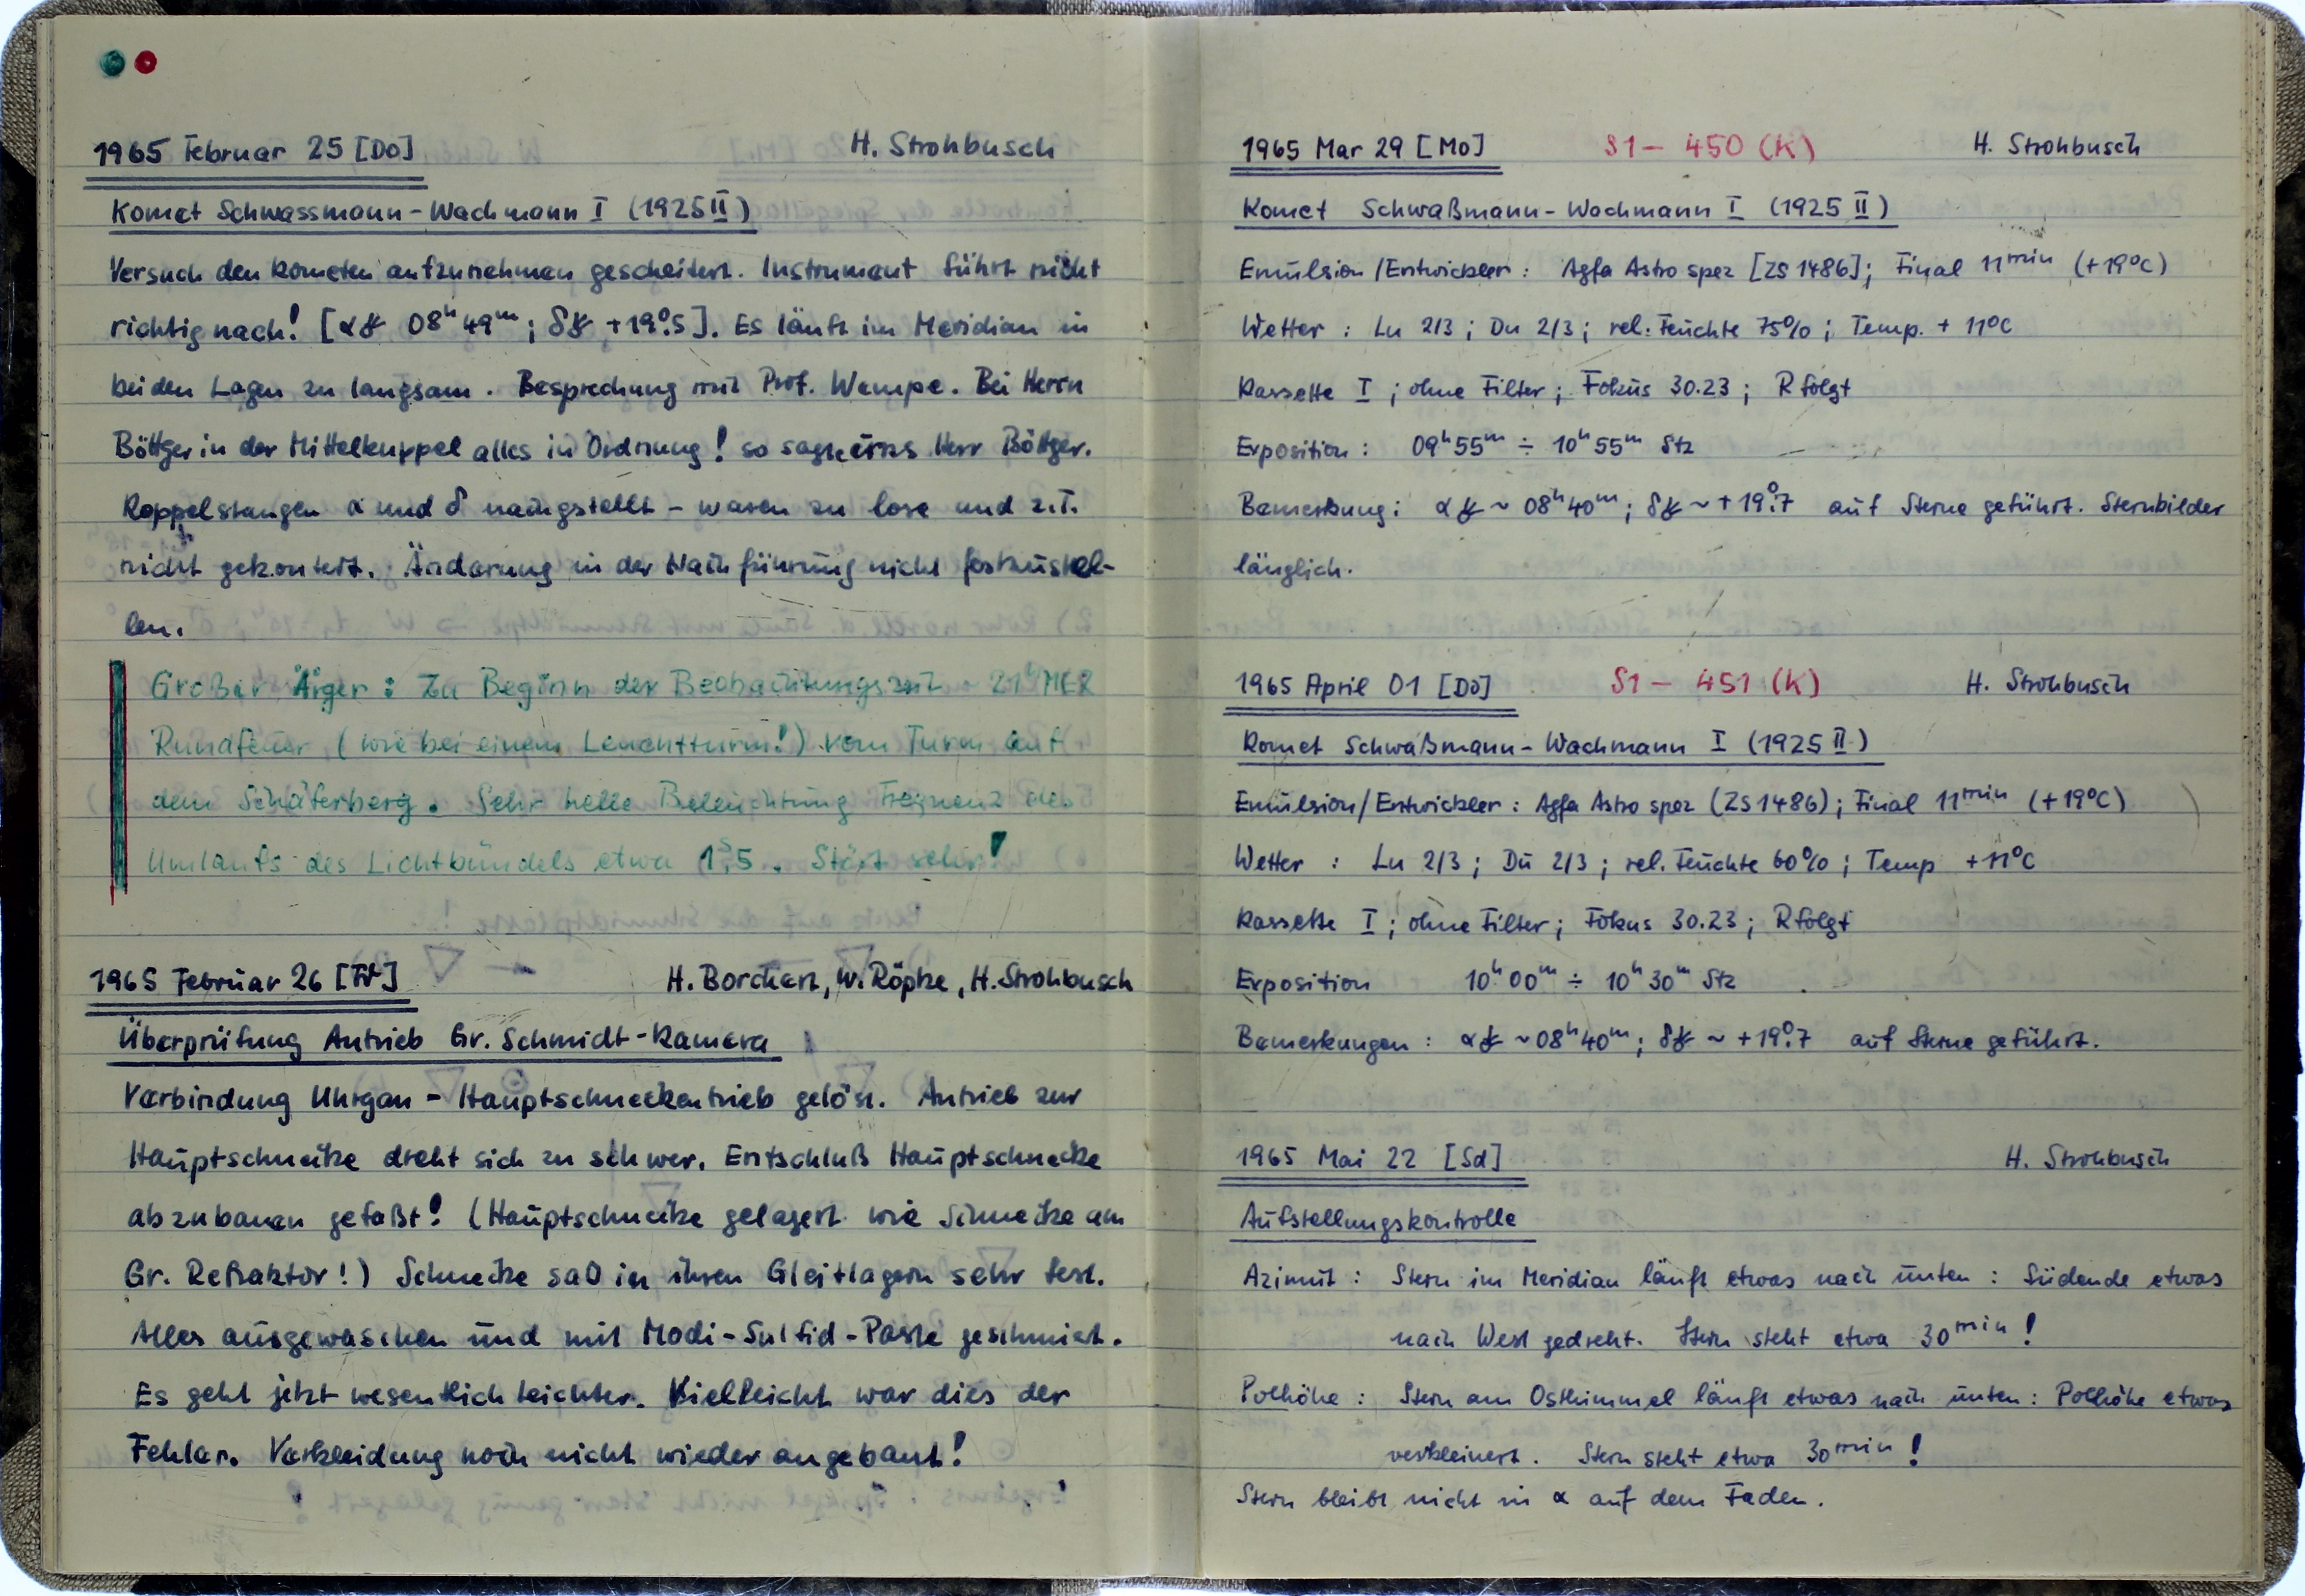 1965 Februar 25 [Do] H. Strohbusch
Komet Schwassmann-Wachmann I (1925 II)
Versuch den Kometen aufzunehmen gescheitert. Instrument führt nicht
richtig nach! [α☄ 08ʰ 49ᵐ; δ☄ +19°.5]. Es läuft im Meridian in
beiden Lagen zu langsam. Besprechung mit Prof. Wempe. Bei Herrn
Böttger in der Mittelkuppel alles in Ordnung! so sagte uns Herr Böttger.
Koppelstangen α und δ nachgestellt – waren zu lose und z.T.
nicht gekontert. Änderung in der Nachführung nicht festzustel-
len.
Großer Ärger: Zu Beginn der Beobachtungszeit 21ʰ MEZ
Rundfeuer (wie bei einem Leuchtturm!) vom Turm auf
dem Schäferberg. Sehr helle Beleuchtung Frequenz des
Umlaufs des Lichtbündels etwa 1ˢ.5. Stört sehr!
1965 Februar 26 [Fr] H. Borchert, W. Röpke, H. Strohbusch
Überprüfung Antrieb Gr. Schmidt-Kamera
Verbindung Uhrgan – Hauptschneckentrieb gelöst. Antrieb zur
Hauptschnecke dreht sich zu schwer. Entschluß Hauptschnecke
abzubauen gefaßt! (Hauptschnecke gelagert wie Schnecke am
Gr. Refraktor!) Schnecke saß in ihren Gleitlagern sehr fest.
Alles ausgewaschen und mit Modi-Sulfid-Paste geschmiert.
Es geht jetzt wesentlich leichter. Vielleicht war dies der
Fehler. Verkleidung noch nicht wieder angebaut!
1965 Mar 29 [Mo] S1 – 450 (K) H. Strohbusch
Komet Schwaßmann-Wachmann I (1925 II)
Emulsion/Entwickler: Agfa Astro spez [ZS 1486]; Final 11ᵐⁱⁿ (+19°C)
Wetter: Lu 2/3; Du 2/3; rel. Feuchte 75%; Temp. + 11°C
Kassette I; ohne Filter; Fokus 30.23; R folgt
Exposition: 09ʰ 55ᵐ ÷ 10ʰ 55ᵐ Stz
Bemerkung: α☄ ~ 08ʰ 40ᵐ; δ☄ ~ +19°.7 auf Sterne geführt. Sternbilder
länglich.
1965 April 01 [Do] S1 – 451 (K) H. Strohbusch
Komet Schwaßmann-Wachmann I (1925 II)
Emulsion/Entwickler: Agfa Astro spez (ZS 1486); Final 11ᵐⁱⁿ (+19°C)
Wetter: Lu 2/3; Du 2/3; rel. Feuchte 60%; Temp +11°C
Kassette I; ohne Filter; Fokus 30.23; R folgt
Exposition 10ʰ 00ᵐ ÷ 10ʰ 30ᵐ Stz
Bemerkungen: α☄ ~ 08ʰ 40ᵐ; δ☄ ~ +19°.7 auf Sterne geführt.
1965 Mai 22 [Sd] H. Strohbusch
Aufstellungskontrolle
Azimut: Stern im Meridian läuft etwas nach unten: Südende etwas
nach West gedreht. Stern steht etwa 30ᵐⁱⁿ!
Polhöhe: Stern am Osthimmel läuft etwas nach unten: Polhöhe etwas
verkleinert. Stern steht etwa 30ᵐⁱⁿ!
Stern bleibt nicht in α auf dem Faden.